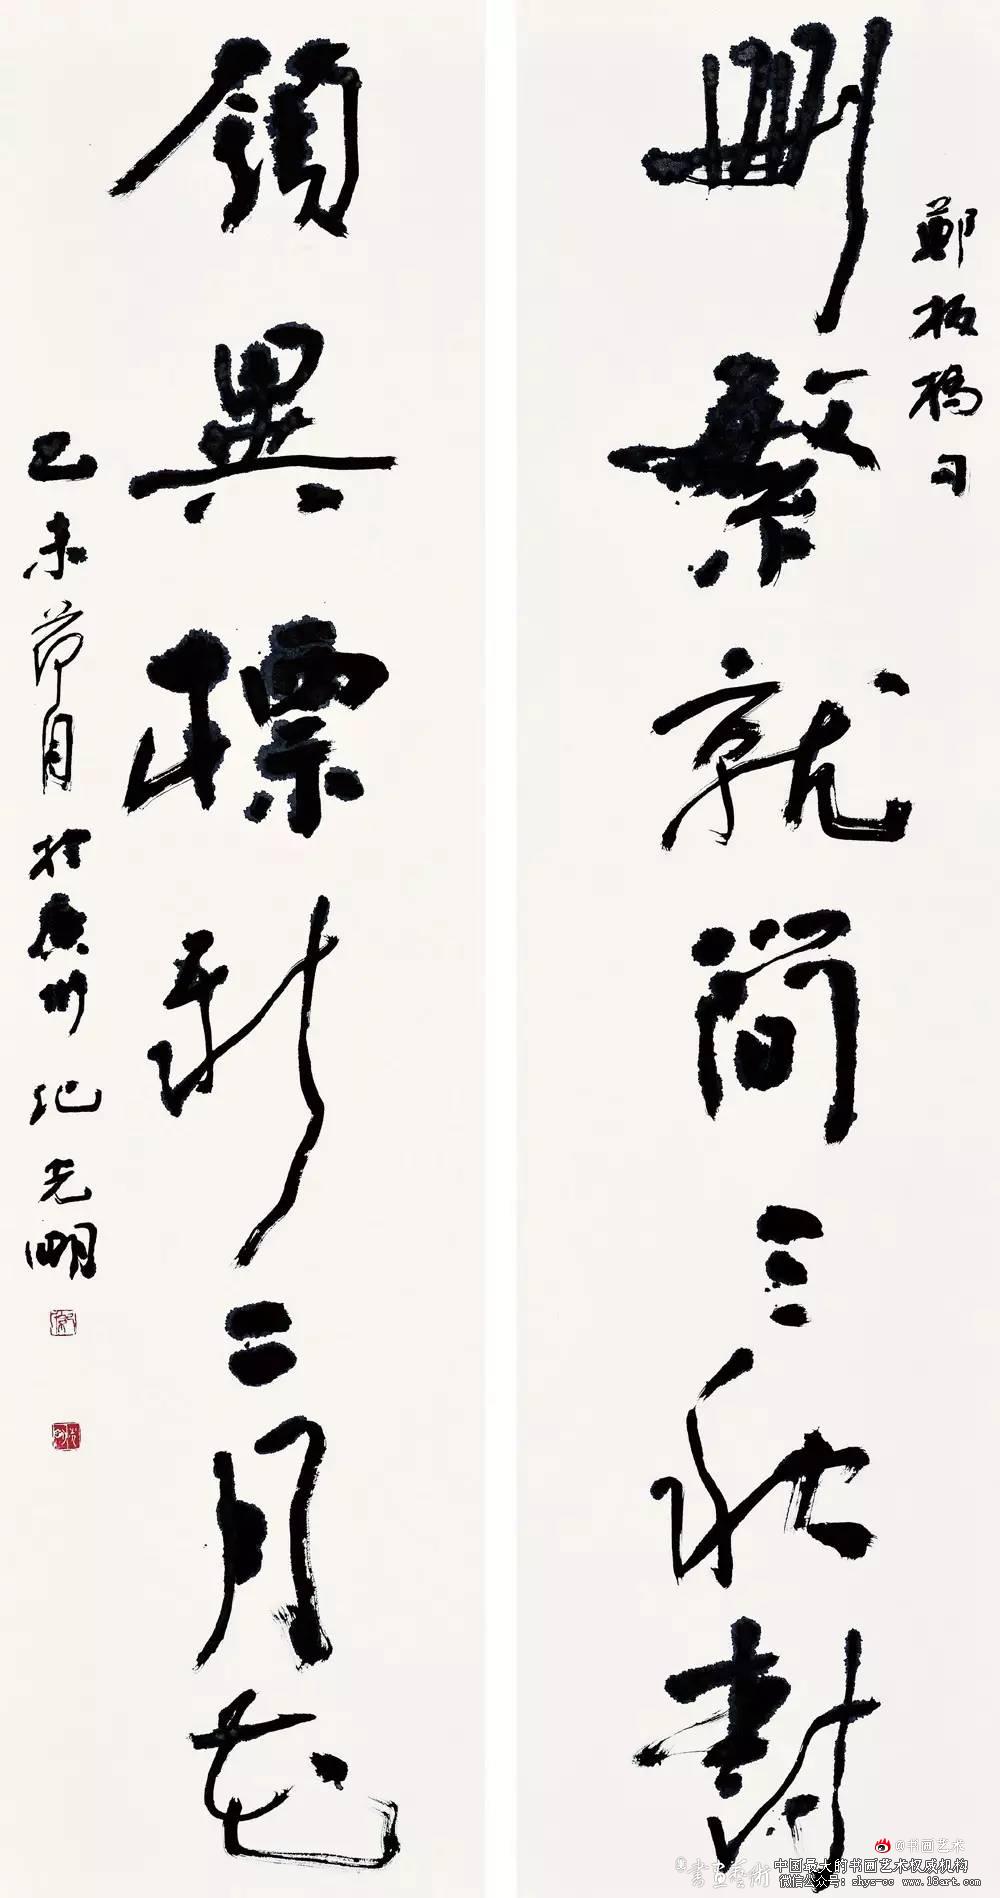 鄭板橋句
刪繁就簡三秋樹
領異標新二月花
乙未月於廣州 紀光明
@书画艺术
書畫藝術
中国最大的书画艺术权威机构
微信公众号: shys-cc www.18art.com